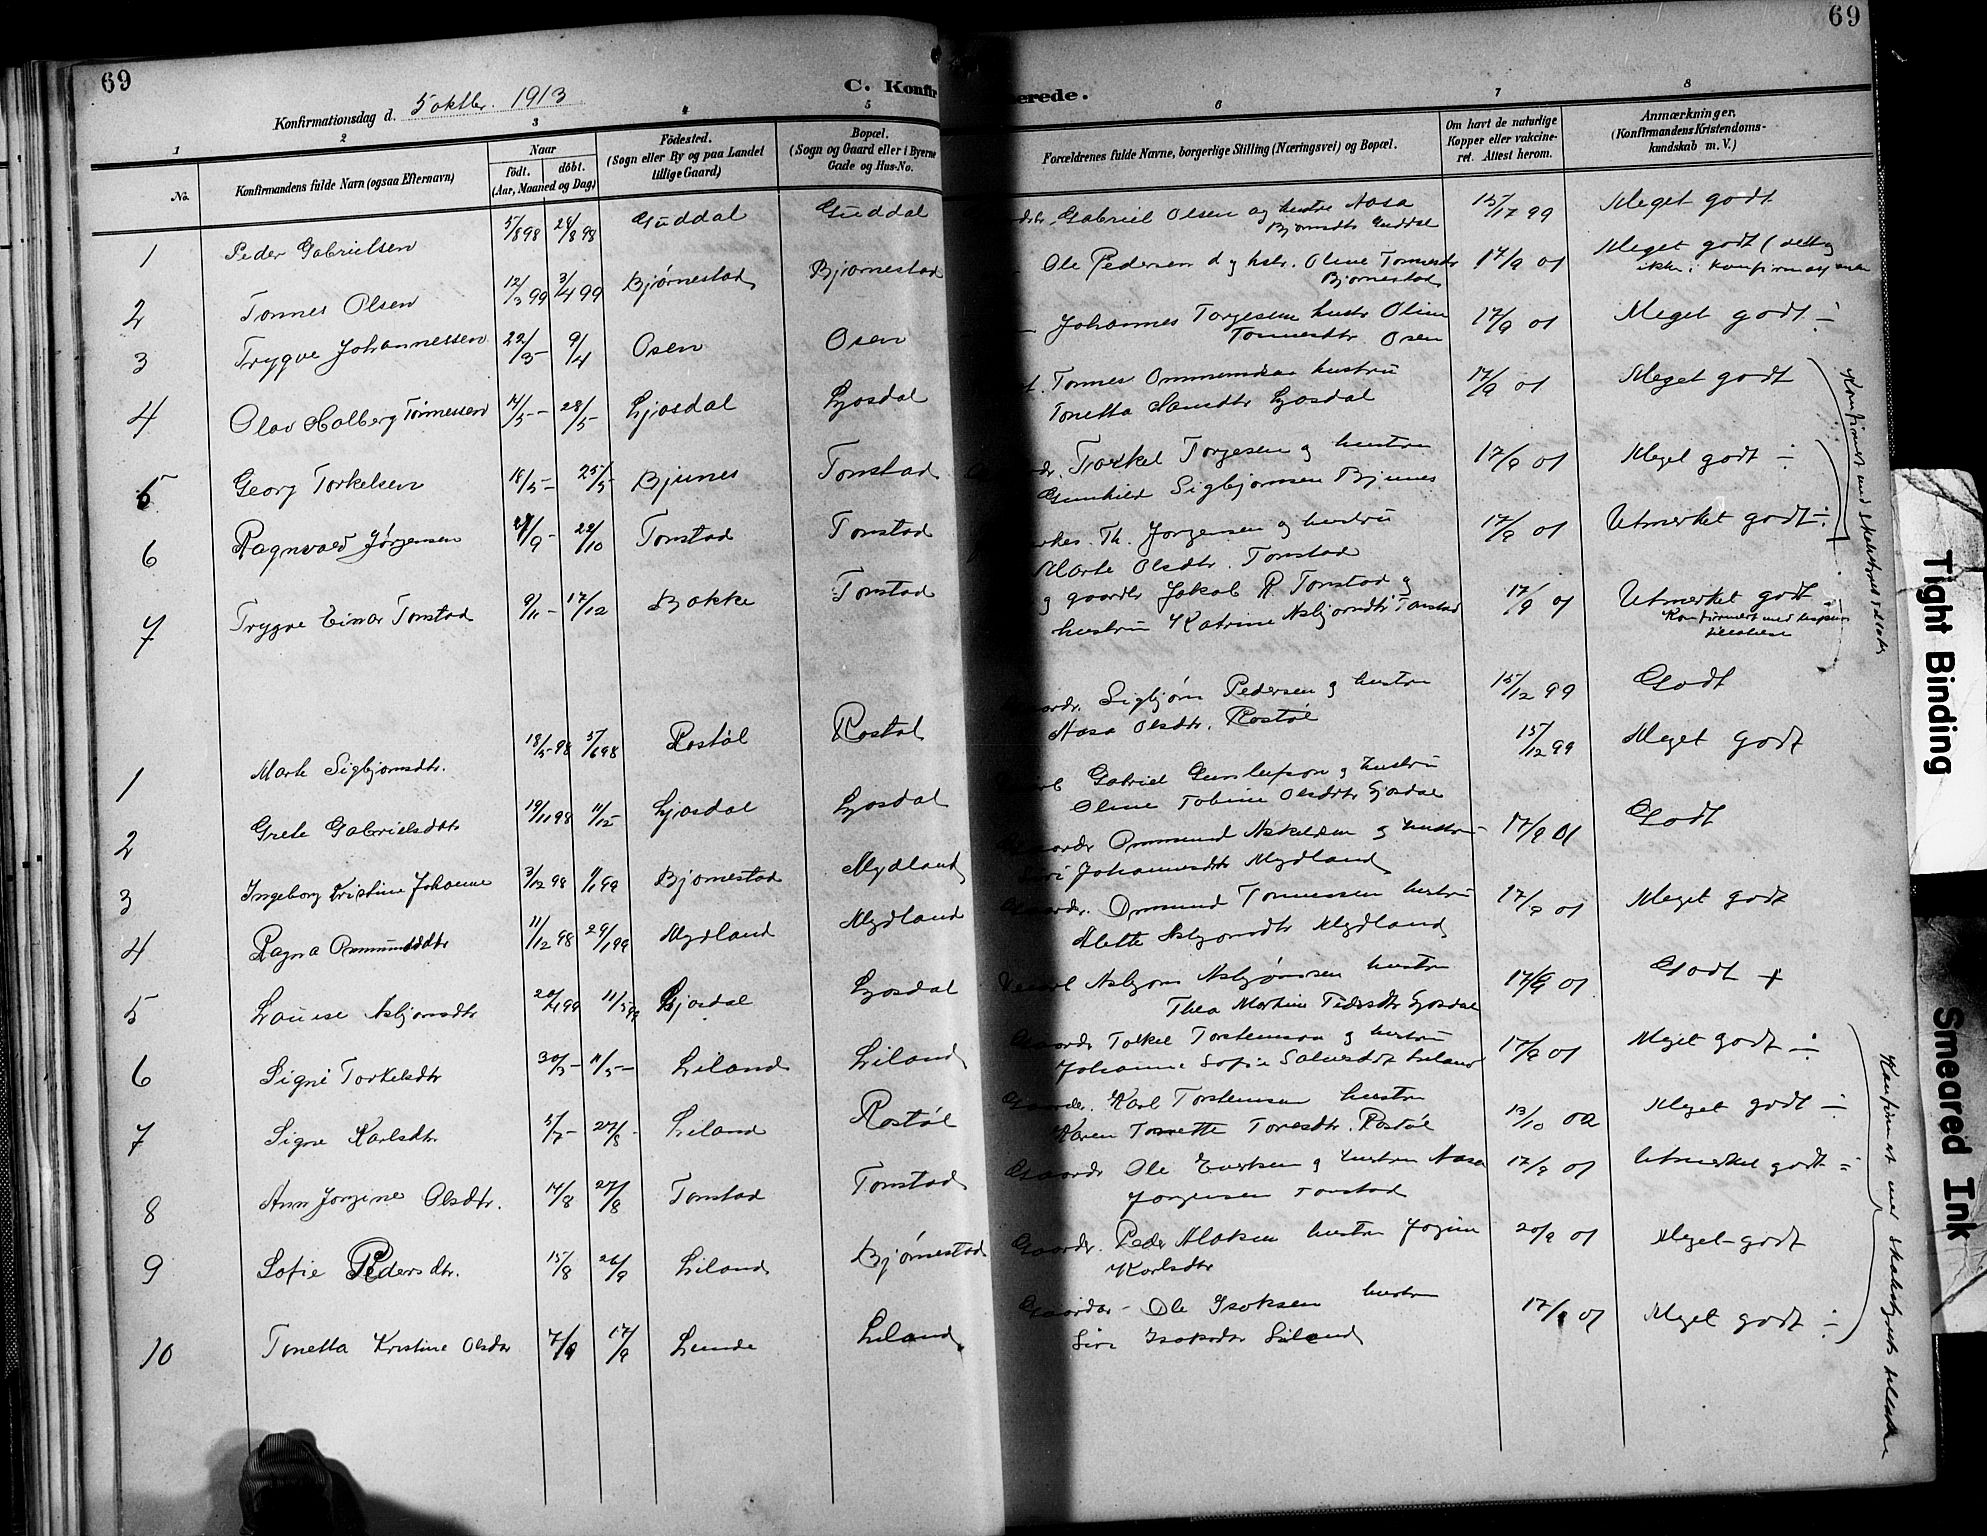 69
69
C. Konfirmerede.
Konfirmationsdag d. 5 oktbr. 1913
1 2 3 4 5 6 7 8
No.
Konfirmandens fulde Navn (ogsaa Efternavn)
Naar
födt. döbt.
(Aar, Maaned og Dag)
Födested.
(Sogn eller By og paa Landet
tillige Gaard)
Bopæl.
(Sogn og Gaard eller i Byerne
Gade og Hus-No.
Forældrenes fulde Navne, borgerlige Stilling (Næringsvei) og Bopæl.
Om havt de naturlige
Kopper eller vakcine-
ret. Attest herom.
Anmærkninger.
(Konfirmandens Kristendoms-
kundskab m. V.)
1 Peder Gabrielsen 5/8 98 28/8 98 Guddal Guddal Gabriel Olsen og hustru Aasa
Bjornsdtr Guddal 15/12 99 Meget godt
2 Tønnes Olsen 12/3 99 3/4 99 Bjørnestad Bjørnestad Ole Pedersen og hstr. Oline Tønnesdr
Bjørnestad 17/9 01 Meget godt
3 Trygve Johannessen 22/3 - 9/4 Osen Osen Johannes Torgesen hustr Oline
Tønnesdtr Osen 17/9 01 Meget godt ÷
4 Olav Halberg Tønnessen 14/5 - 28/5 - Ljosdal Ljosdal Tønnes Ommundsen hustru
Tonetta Ljosdal 17/9 01 Meget godt
5 Georg Torkelsen 18/5 - 25/5 Bjunes Tonstad Torkel Torgesen og hustru
Gunhild Sigbjørnsen Bjunes 17/9 01 Meget godt ÷
6 Ragnvald Jørgensen 21/9 - 22/10 Tonstad Tonstad Th. Jørgensen og hustru
Marte Olsdtr. Tonstad 17/9 01 Utmerket godt ÷
7 Trygve Einar Tonstad 9/11 - 17/12 Bakke Tonstad og gaardbr Jakob R Tonstad og
hustru Katrine Asbjørnsdtr Tonstad 17/9 01 Utmerket godt
Konfirmert med
1 Marte Sigbjørnsdtr. 18/5 98 5/6 98 Rostøl Rostøl Sigbjørn Pedersen og hustru
Aasa Olsdtr. Rostøl 15/12 99 Godt
2 Grete Gabrielsdtr 19/11 98 11/12 Ljosdal Ljosdal Gabriel Gunleifson og hustru
Oline Tobine Olsdtr Ljosdal 15/12 99 Meget godt
3 Ingeborg Kristine Johanne 3/12 98 1/1 99 Bjørnestad Mydland Gaardbr Ommund Askeldsen og hustru
Siri Johannesdtr Mydland 17/9 01 Godt
4 Ragna Ommundsdtr 11/12 98 29/1 99 Mydland Mydland Gaardbr. Ommund Tønnessen hustru
Alette Asbjornsdtr Mydland 17/9 01 Meget godt
5 Lauise Asbjornsdtr 20/4 99 11/5 99 Ljosdal Ljosdal Asbjørn Asbjørnsen hustru
Thea Martine Pedersdtr Ljosdal 17/9 01 Godt +
6 Signe Torkelsdtr 30/3 - 11/5 - Liland Liland Gaardbr Torkel Torstenson og hustru
Johanne Sofie Salvesdt Liland 17/9 01 Meget godt ÷
7 Signe Karlsdtr 5/7 - 27/8 - Liland Rostøl Gaardbr. Karl Torstensen hustru
Karen Tonette Tonesdtr. Rostøl 13/10 02 Meget godt ÷
8 Ann Jorgine Olsdtr. 14/8 27/8 Tonstad Tonstad Gaardbr Ole Eriksen og hustru Aasa
Jorgensen Tonstad 17/9 01 Utmerket godt ÷
9 Sofie Pedersdtr. 15/8 26/9 Liland Bjørnestad Gaardbr. Peder Aloksen hustru Jogine
Karlsdtr 20/9 01 Meget godt
10 Tonetta Kristine Olsdtr 7/9 17/9 Lunde Liland Gaardbr - Ole Isaksen hustru
Siri Isaksdtr Liland 17/9 01 Meget godt ÷
Konfirmert med skolestyrets
Konfirmert med skolestyrets tillatelse
Tight Binding
Smeared Ink